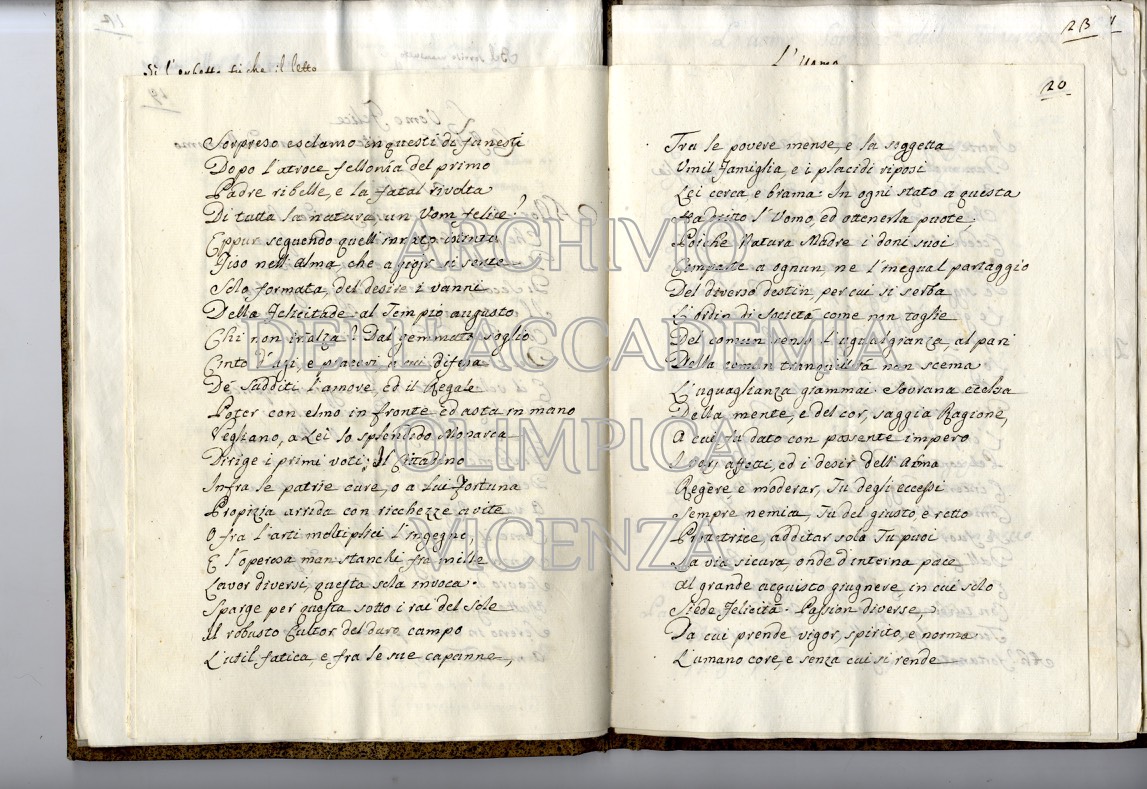 Sorpreso esclamo in questi dì funesti
Dopo l'atroce fellonia del primo
Padre ribelle, e la fatal rivolta
Di tutta la natura un Uom felice?
Eppur seguendo quell' innato
Fiso nell'Alma che a gioir si sente
Solo formata, del desire i vanni
Della Felicitade al Tempio augusto
Chi non inalza? Dal gemmato soglio
Cinto d'agi, e piaceri a cui difesa
De' sudditi l'amore, ed il Regale
Poter con elmo in fronte ed asta in mano
Vegliano, a Lei lo splendido Monarca
Dirige i primi voti; Il Cittadino
Infra le patrie cure, o a lui Fortuna
Propizia arrida con ricchezze avite
O fra l'arti moltiplici l'ingegno,
E l'operosa man stanchi fra mille
Lavor diversi, questa sola invoca.
Sparge per questa sotto i rai del Sole
Il robusto Cultor del duro campo
L'util fatica, e fra le sue capanne,
20
Tra le povere mense, e la soggetta
Umil Famiglia, e i placidi riposi
Lei cerca e brama: In ogni stato a questa
Ha dritto l'Uomo, ed ottenerla puote,
Poichè Natura Madre i doni suoi
Comparte a ognun, ne l'inegual partaggio
Del diverso destin, per cui si serba
L'ordin di Società come non toglie
Del comun senso l'ugualgianza, al pari
Della comun tranquillità non scema
L'uguaglianza giammai. Sovrana eccelsa
Della mente, e del cor, saggia Ragione,
A cui fu dato con possente impero
I varj affetti, ed i desir dell'Alma
Regere e moderar, Tu degli eccessi
Sempre nemica, Tu del giusto e retto
additar sola Tu puoi
La via sicura, onde d'interna pace
Al grande acquisto giugnere in cui solo
Siede Felicità. Passion diverse,
Da cui prende vigor, spirito, e norma
L'umano core, e senza cui si rende
19
Sì l'
che il letto
L'Uomo
23
ARCHIVIO
DELL'ACCADEMIA
OLIMPICA
VICENZA